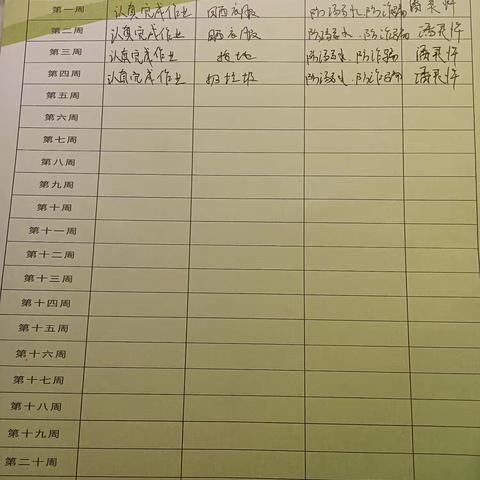 第一周 认真完成作业 晒衣服 防溺水,防诈骗
第二周 认真完成作业 晒衣服 防溺水.防诈骗
第三周 认真完成作业 拖地 防溺水.防诈骗
第四周 认真完成作业 扔垃圾 防溺水.防诈骗
第五周
第六周
第七周
第八周
第九周
第十周
第十一周
第十二周
第十三周
第十四周
第十五周
第十六周
第十七周
第十八周
第十九周
第二十周